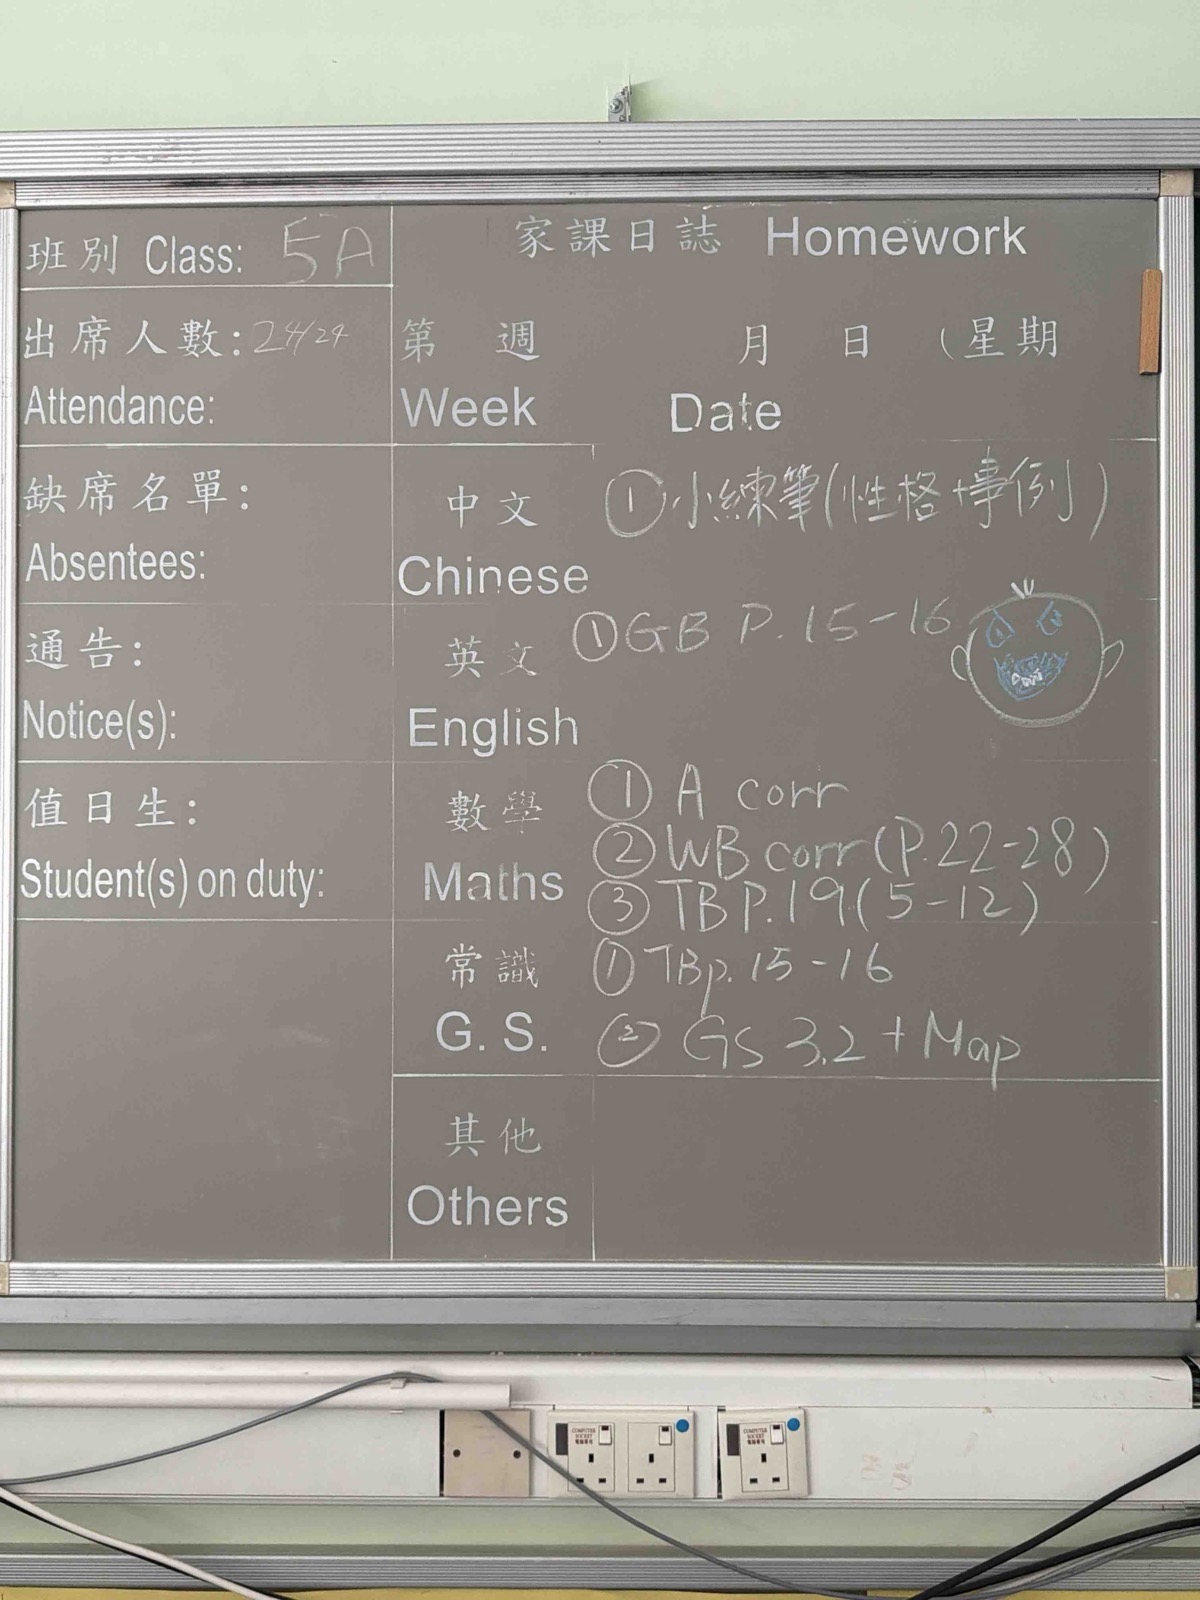 班別 Class: 5A
出席人數: 24/24
Attendance:
缺席名單:
Absentees:
通告:
Notice(s):
值日生:
Student(s) on duty:
家課日誌 Homework
第 週 月 日 (星期
Week Date
中文 ①小練筆(性格+事例)
Chinese
英文 ①GB P.15-16
English
數學 ① A corr
Maths ② WB corr (P.22-28)
③ TB P.19 (5-12)
常識 ① TBp.15-16
G. S. ② GS 3.2 + Map
其他
Others
COMPUTER SOCKET
COMPUTER SOCKET